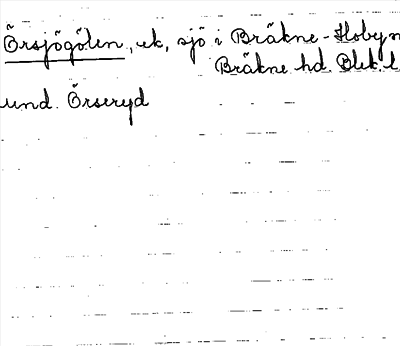 Örsjögölen, ek, sjö i Bräkne-Hoby
Bräkne hd. Blek. l
und. Örseryd